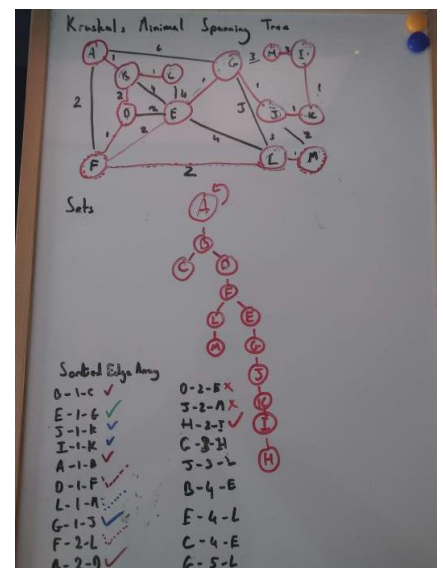 Kruskal's Minimal Spanning Tree
A 6 G 3 H I
B C
2 D E J K
2 F 2 4 L M
Sets
A
B
C D
F
L E
M G
J
K
I
H
Sorted Edge Array
B-1-C ✓
E-1-G ✓
J-1-K ✓
I-1-K ✓
A-1-B ✓
D-1-F ✓
L-1-M
G-1-J ✓
F-2-L
B-2-D ✓
D-2-E ✗
J-2-M ✗
H-2-I ✓
C-3-H
J-3-L
B-4-E
E-4-L
C-4-E
G-5-L